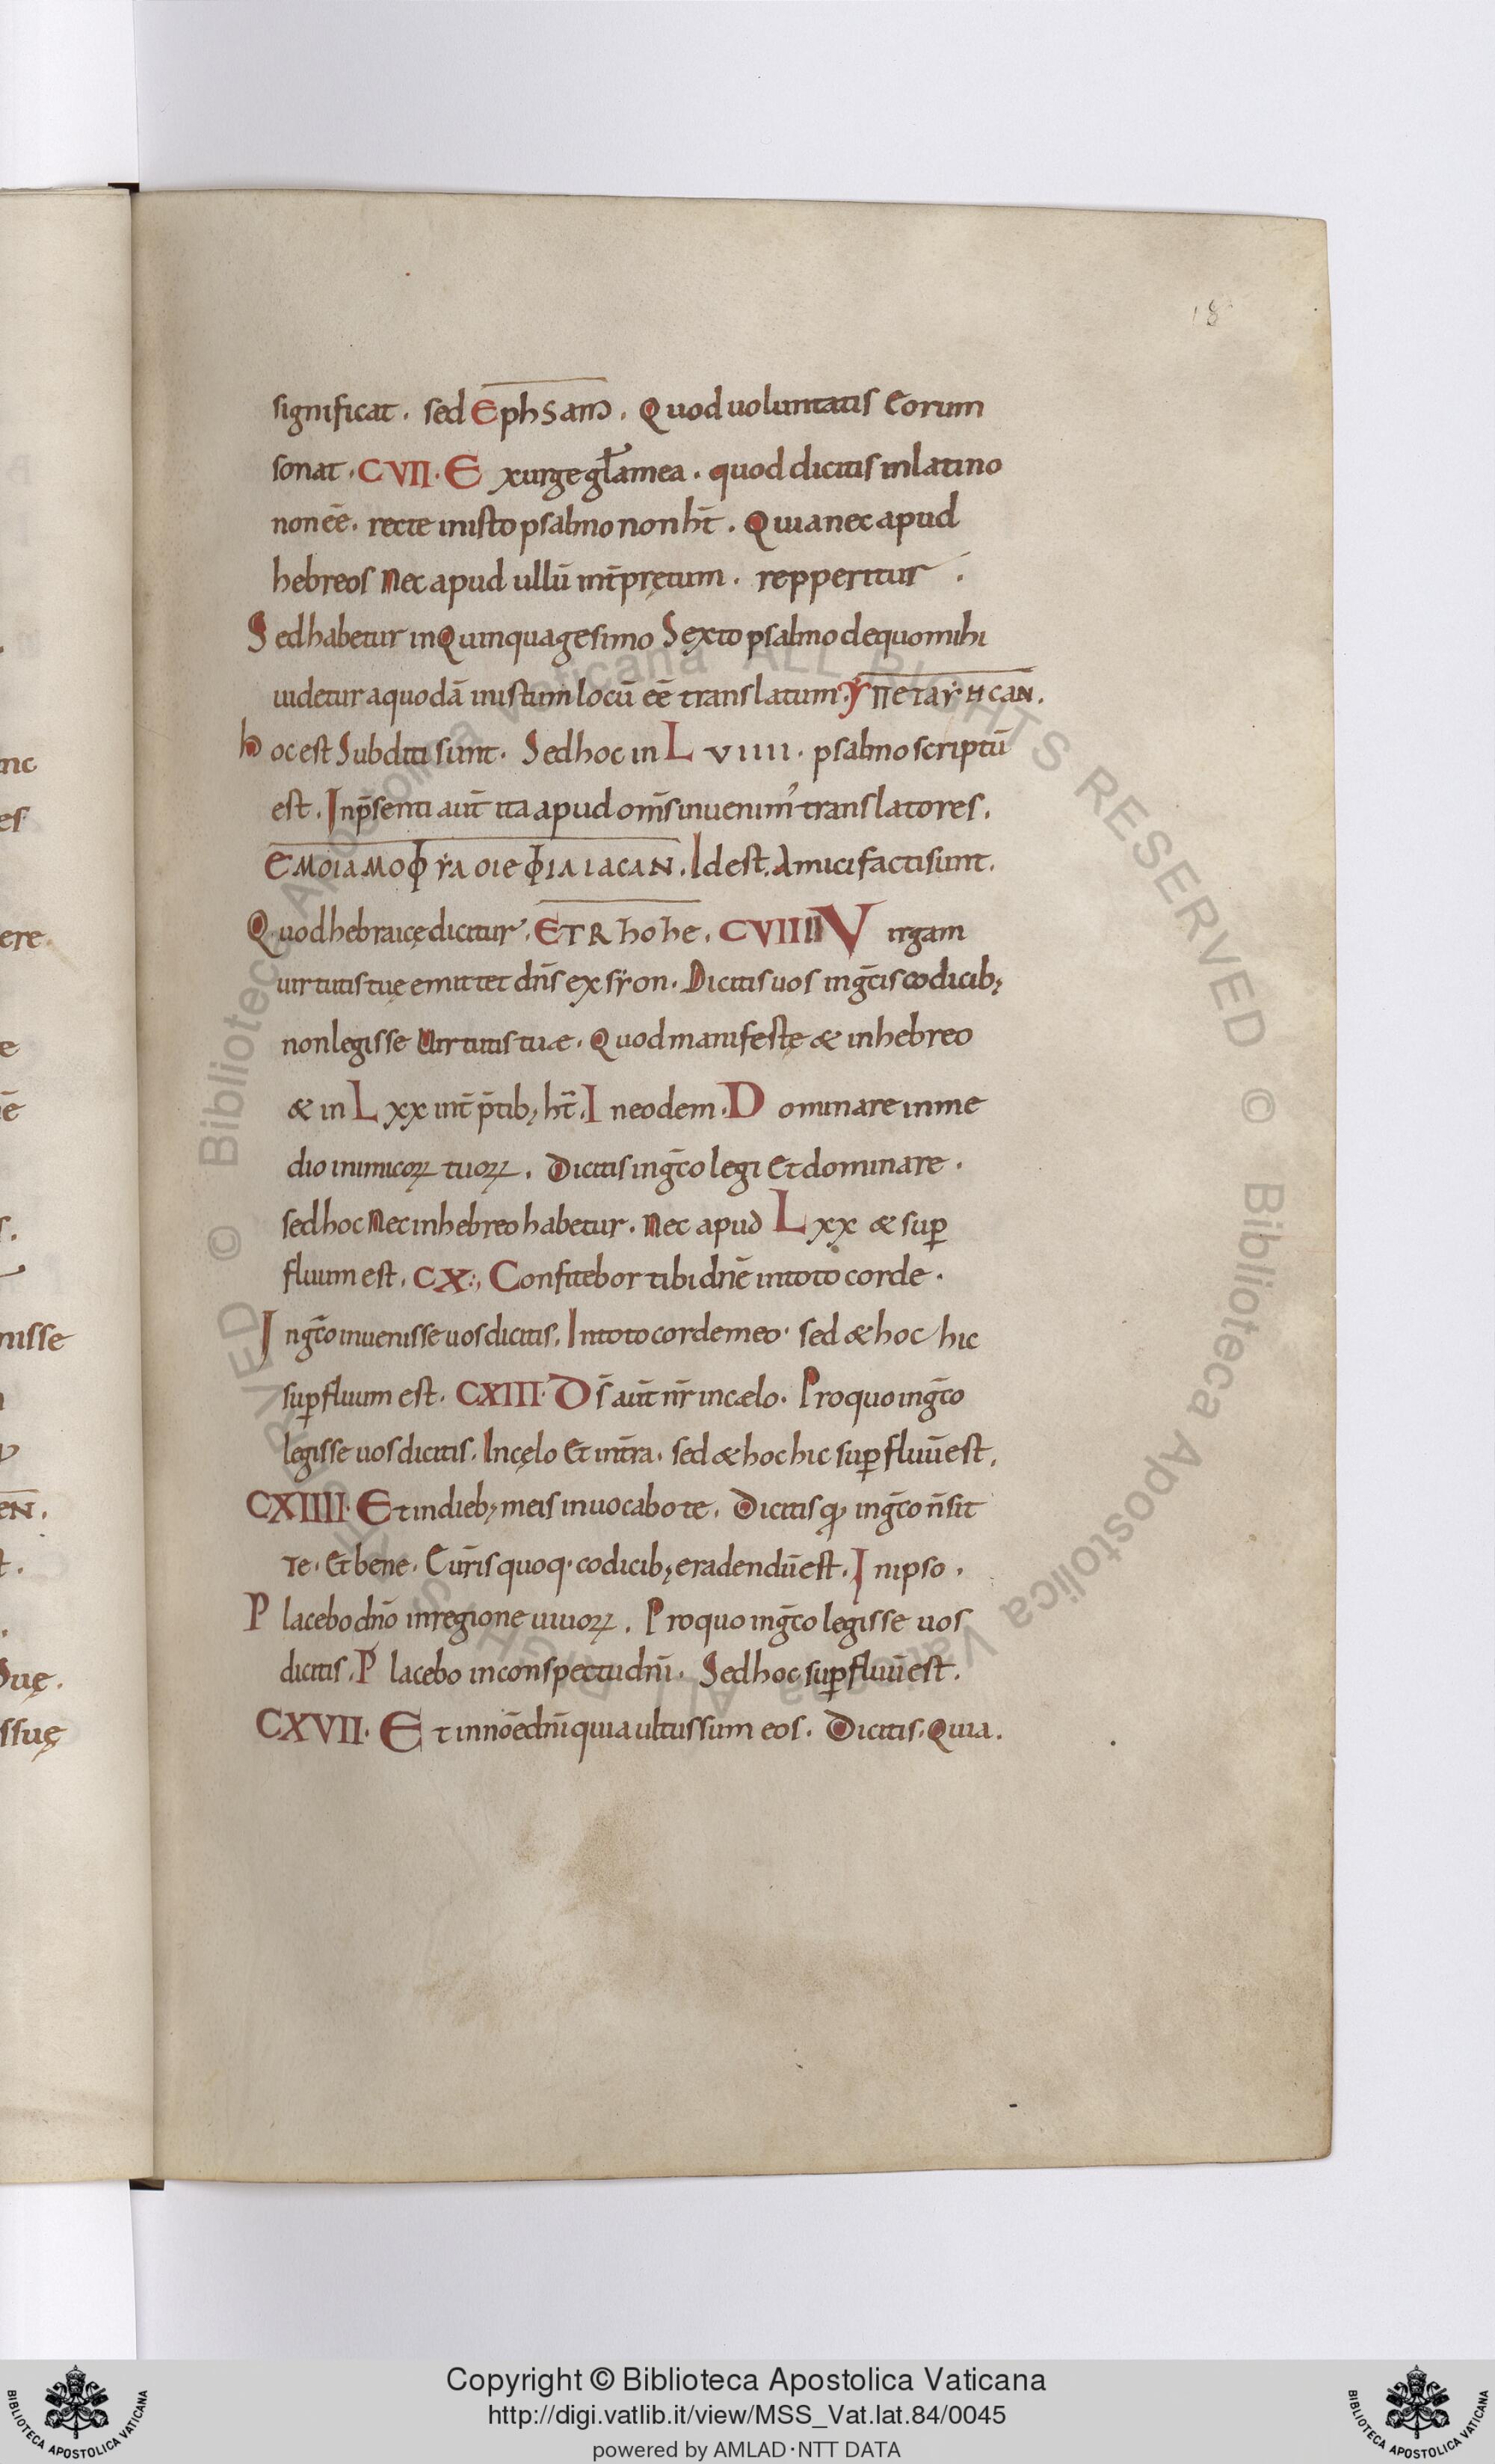 18
significat. sed Ephsam. Quod uoluntatis eorum
sonat. CVII. Exurge gl̄a mea. quod dicitis in latino
non eē. recte in isto psalmo non ht̄. Quia nec apud
hebreos nec apud ullū int̄prętum. repperitur.
Sed habetur in Quinquagesimo Sexto psalmo de quo mihi
uidetur a quodā in istum locū eē translatum. ΥΠΕΤΑΥΗCΑΝ.
hoc est Subditi sunt. Sed hoc in LVIIII. psalmo scriptū
est. In p̄senti aut̄ ita apud om̄s inuenim' translatores.
ΕΜΟΙΑΜΟΦΥΛΟΙΕΦΙΛΙΑCΑΝ. Idest. Amici facti sunt.
Quod hebraicę dicitur. ETRhohe. CVIIII Virgam
uirtutis tuę emittet dn̄s ex syon. Dicitis uos in gr̄cis codicib;
non legisse Uirtutis tuæ. Quod manifestę & in hebreo
& in Lxx int̄p̄tib; ht̄. In eodem. Dominare in me
dio inimicoꝝ tuoꝝ. Dicitis in gr̄co legi Et dominare.
sed hoc Nec in hebreo habetur. Nec apud Lxx & suꝑ
fluum est. CX:, Confitebor tibi dn̄e in toto corde.
In gr̄co inuenisse uos dicitis. In toto corde meo. sed & hoc hic
suꝑfluum est. CXIII. Ds̄ aut̄ nr̄ in cælo. Pro quo in gr̄co
legisse uos dicitis. In cęlo Et in tr̄a. sed & hoc hic suꝑfluū est.
CXIIII. Et in dieb; meis inuocabo te. Dicitis qđ in gr̄co n̄ sit
Te. Et bene. E ur̄is quoq. codicib; eradendū est. In ipso.
Placebo dn̄o in regione uiuoꝝ. Pro quo in gr̄co legisse uos
dicitis. Placebo in conspectu dn̄i. Sed hoc suꝑfluū est.
CXVII. Et in nōe dn̄i quia ultus sum eos. Dicitis. Quia.
© Biblioteca Apostolica Vaticana ALL RIGHTS RESERVED
Copyright © Biblioteca Apostolica Vaticana
http://digi.vatlib.it/view/MSS_Vat.lat.84/0045
powered by AMLAD·NTT DATA
BIBLIOTECA APOSTOLICA VATICANA
BIBLIOTECA APOSTOLICA VATICANA